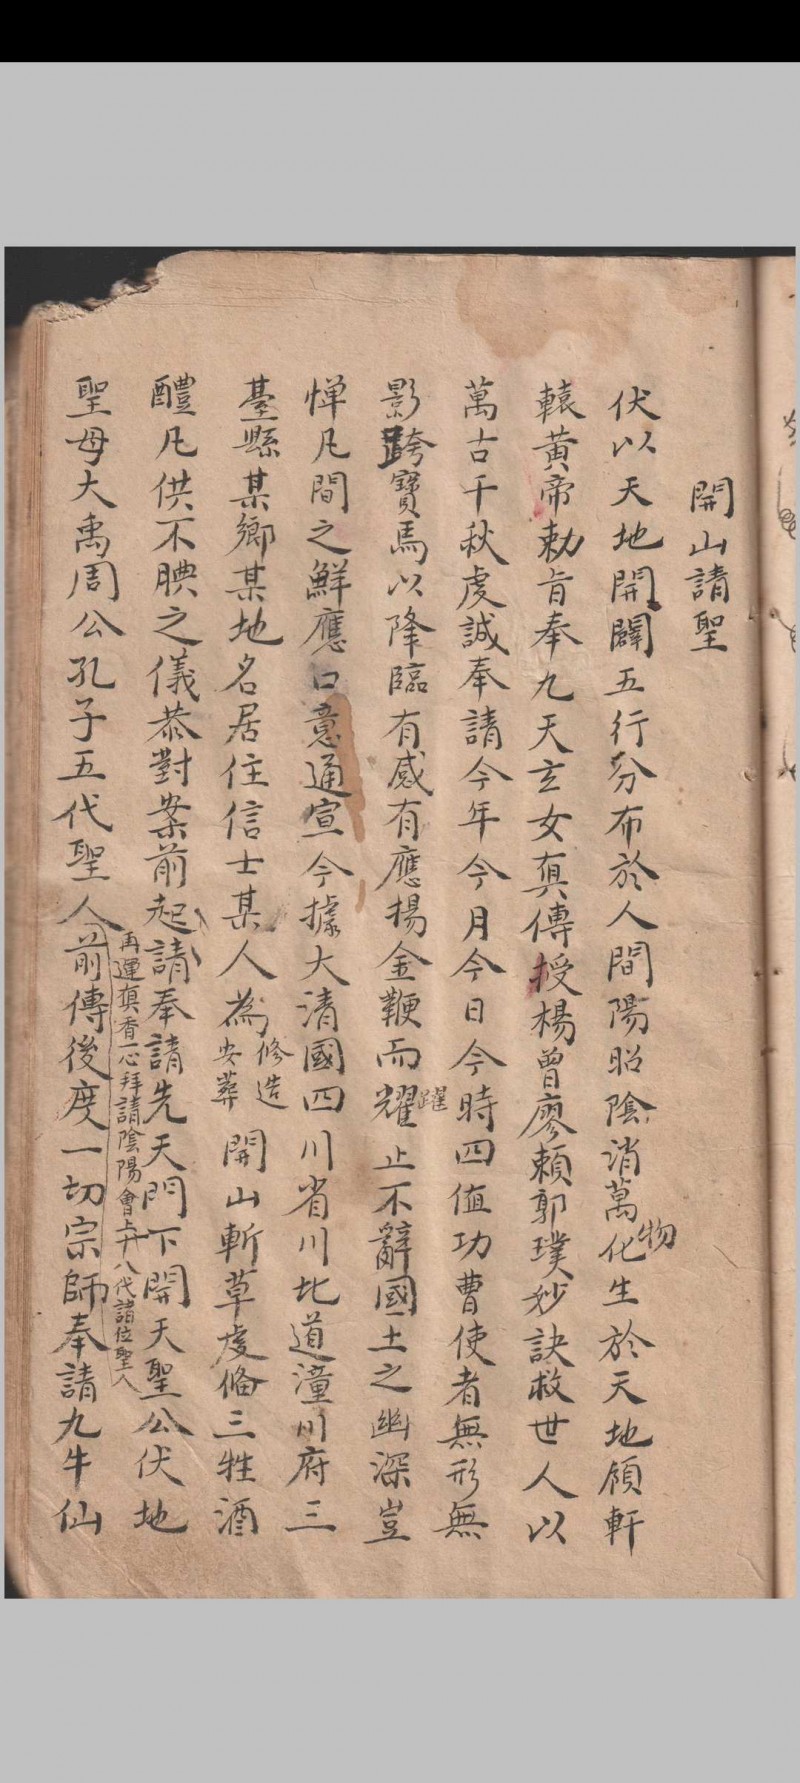 開山請聖
伏以天地開闢五行分布於人間陽昭陰消萬化物生於天地頎軒
轅黃帝勅旨奉九天玄女真傳授楊曾廖頼郭璞妙訣救世人以
萬古千秋虔誠奉請今年今月今日今時四值功曹使者無形無
影跨寶馬以降臨有感有應揚金鞭而耀躍止不辭國土之幽深豈
惮凡間之鮮應口意通宣今據大清國四川省川北道潼川府三
臺縣某鄉某地名居住信士某人為修造安葬開山斬草虔備三牲酒
醴凡供不腆之儀恭對案前起請奉請先天門下開天聖公伏地
再運真香一心拜請陰陽會上十八代諸位聖人
聖母大禹周公孔子五代聖人前傳後度一切宗師奉請九牛仙